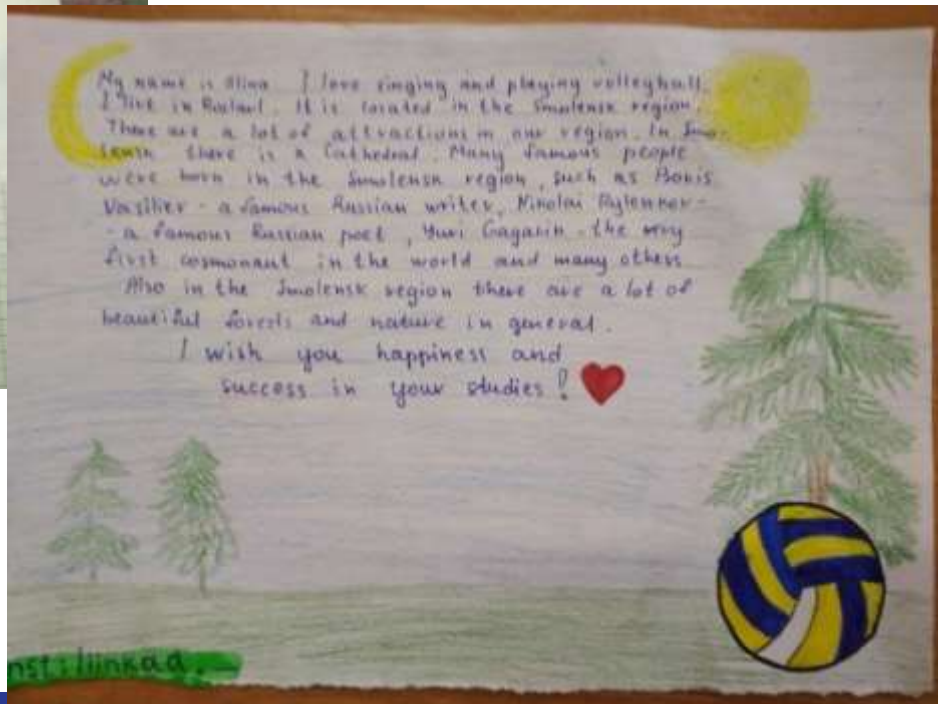 My name is Alina. I love singing and playing volleyball.
I live in Roslavl. It is located in the Smolensk region.
There are a lot of attractions in our region. In Smo-
lensk there is a Cathedral. Many famous people
were born in the Smolensk region, such as Boris
Vasiliev - a famous Russian writer, Nikolai Rylenkov -
- a famous Russian poet, Yuri Gagarin - the very
first cosmonaut in the world and many others
Also in the Smolensk region there are a lot of
beautiful forests and nature in general.
I wish you happiness and
success in your studies!
nst: liinkaa.